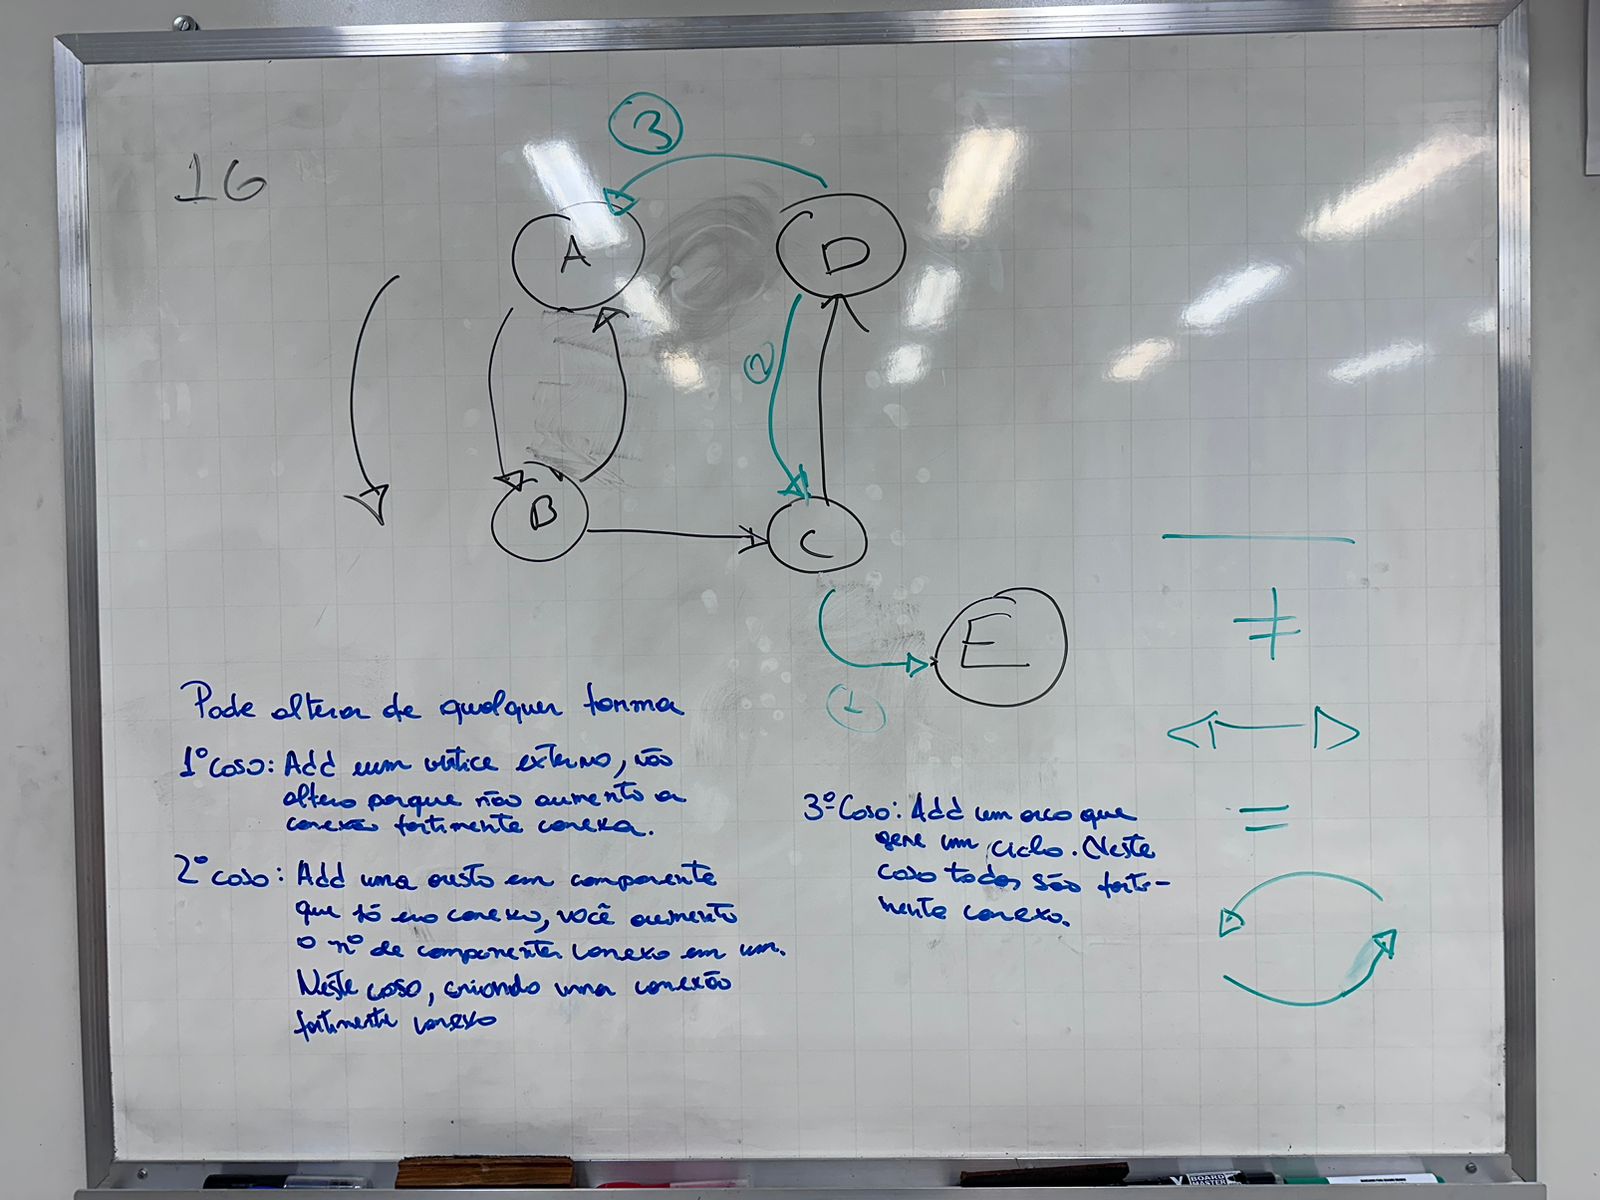 16
3
A
D
2
B
C
E
1
Pode altera de qualquer forma
1º caso: Add um vértice externo, não
altera porque não aumenta a
conexão fortimente conexa.
2º caso: Add uma aresta em componente
que só era conexo, você aumenta
o nº de componentes conexo em um.
Neste caso, criando uma conexão
fortimente conexo
3º Caso: Add um arco que
gere um ciclo. Neste
caso todos são forti-
mente conexo.
≠
=
BOARD
MASTER